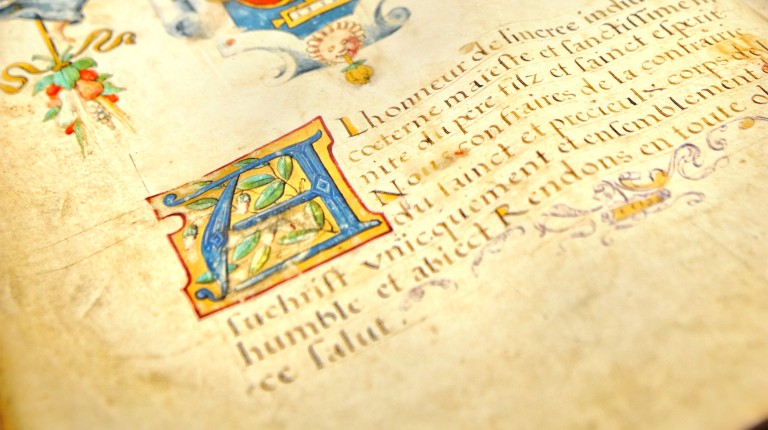 A Lhonneur de lincree indiui
coeterne maieste et sanctissime
nite du pere filz et sainct esperit
Nous confraires de la confrairie
du sainct et precieulx corps de
suchrist vnicquement et ensemblement
humble et abiect Rendons en toute
ce salut.